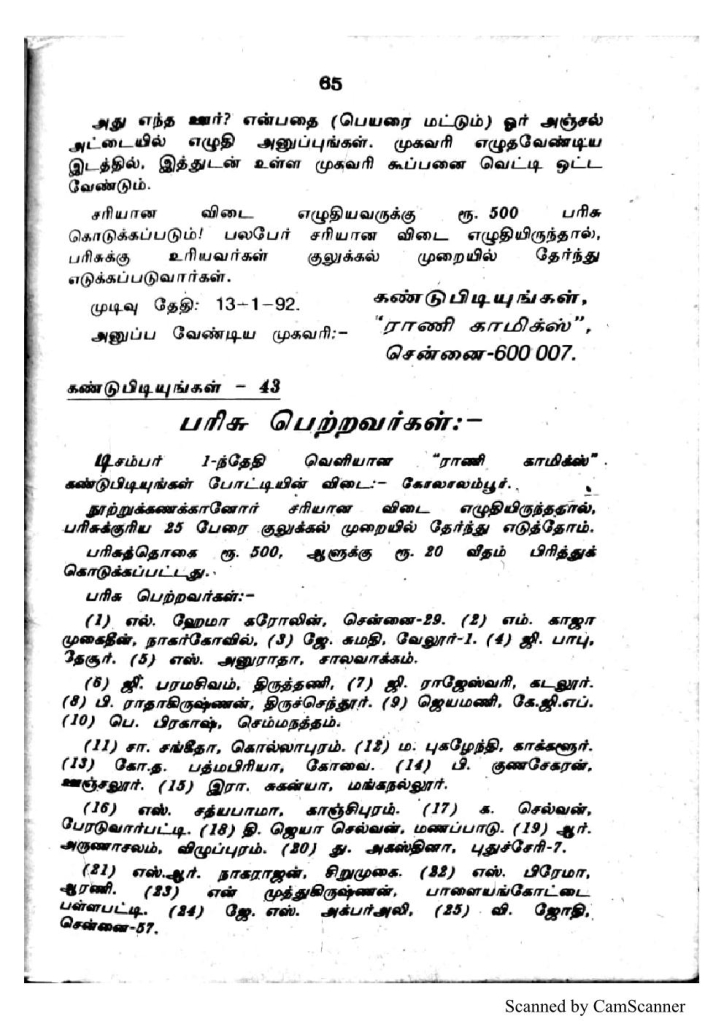 65
அது எந்த ஊர்? என்பதை (பெயரை மட்டும்) ஓர் அஞ்சல்
அட்டையில் எழுதி அனுப்புங்கள். முகவரி எழுதவேண்டிய
இடத்தில், இத்துடன் உள்ள முகவரி கூப்பனை வெட்டி ஒட்ட
வேண்டும்.
சரியான விடை எழுதியவருக்கு ரூ. 500 பரிசு
கொடுக்கப்படும்! பலபேர் சரியான விடை எழுதியிருந்தால்,
பரிசுக்கு உரியவர்கள் குலுக்கல் முறையில் தேர்ந்து
எடுக்கப்படுவார்கள்.
முடிவு தேதி: 13-1-92.
அனுப்ப வேண்டிய முகவரி:-
கண்டுபிடியுங்கள்,
"ராணி காமிக்ஸ்",
சென்னை-600 007.
கண்டுபிடியுங்கள் - 43
பரிசு பெற்றவர்கள்:-
டிசம்பர் 1-ந்தேதி வெளியான "ராணி காமிக்ஸ்"
கண்டுபிடியுங்கள் போட்டியின் விடை:- கோலாலம்பூர்.
நூற்றுக்கணக்கானோர் சரியான விடை எழுதியிருந்ததால்,
பரிசுக்குரிய 25 பேரை குலுக்கல் முறையில் தேர்ந்து எடுத்தோம்.
பரிசுத்தொகை ரூ. 500, ஆளுக்கு ரூ. 20 வீதம் பிரித்துக்
கொடுக்கப்பட்டது.
பரிசு பெற்றவர்கள்:-
(1) எல். ஹேமா கரோலின், சென்னை-29. (2) எம். காஜா
முகைதீன், நாகர்கோவில், (3) ஜே. சுமதி, வேலூர்-1. (4) ஜி. பாபு,
தேசூர். (5) எஸ். அனுராதா, சாலவாக்கம்.
(6) ஜீ. பரமசிவம், திருத்தணி, (7) ஜி. ராஜேஸ்வரி, கடலூர்.
(8) பி. ராதாகிருஷ்ணன், திருச்செந்தூர். (9) ஜெயமணி, கே.ஜி.எப்.
(10) பெ. பிரகாஷ், செம்மநத்தம்.
(11) சா. சங்கீதா, கொல்லாபுரம். (12) ம. புகழேந்தி, காக்களூர்.
(13) கோ.த. பத்மபிரியா, கோவை. (14) பி. குணசேகரன்,
ஊஞ்சலூர். (15) இரா. சுகன்யா, மங்கநல்லூர்.
(16) எஸ். சத்யபாமா, காஞ்சிபுரம். (17) க. செல்வன்,
பேரடுவார்பட்டி. (18) தி. ஜெயா செல்வன், மணப்பாடு. (19) ஆர்.
அருணாசலம், விழுப்புரம். (20) து. அகஸ்தினா, புதுச்சேரி-7.
(21) எஸ்.ஆர். நாகராஜன், சிறுமுகை. (22) எஸ். பிரேமா,
ஆரணி. (23) என் முத்துகிருஷ்ணன், பாளையங்கோட்டை
பள்ளபட்டி. (24) ஜே. எஸ். அக்பர்அலி, (25) வி. ஜோதி,
சென்னை-57.
Scanned by CamScanner